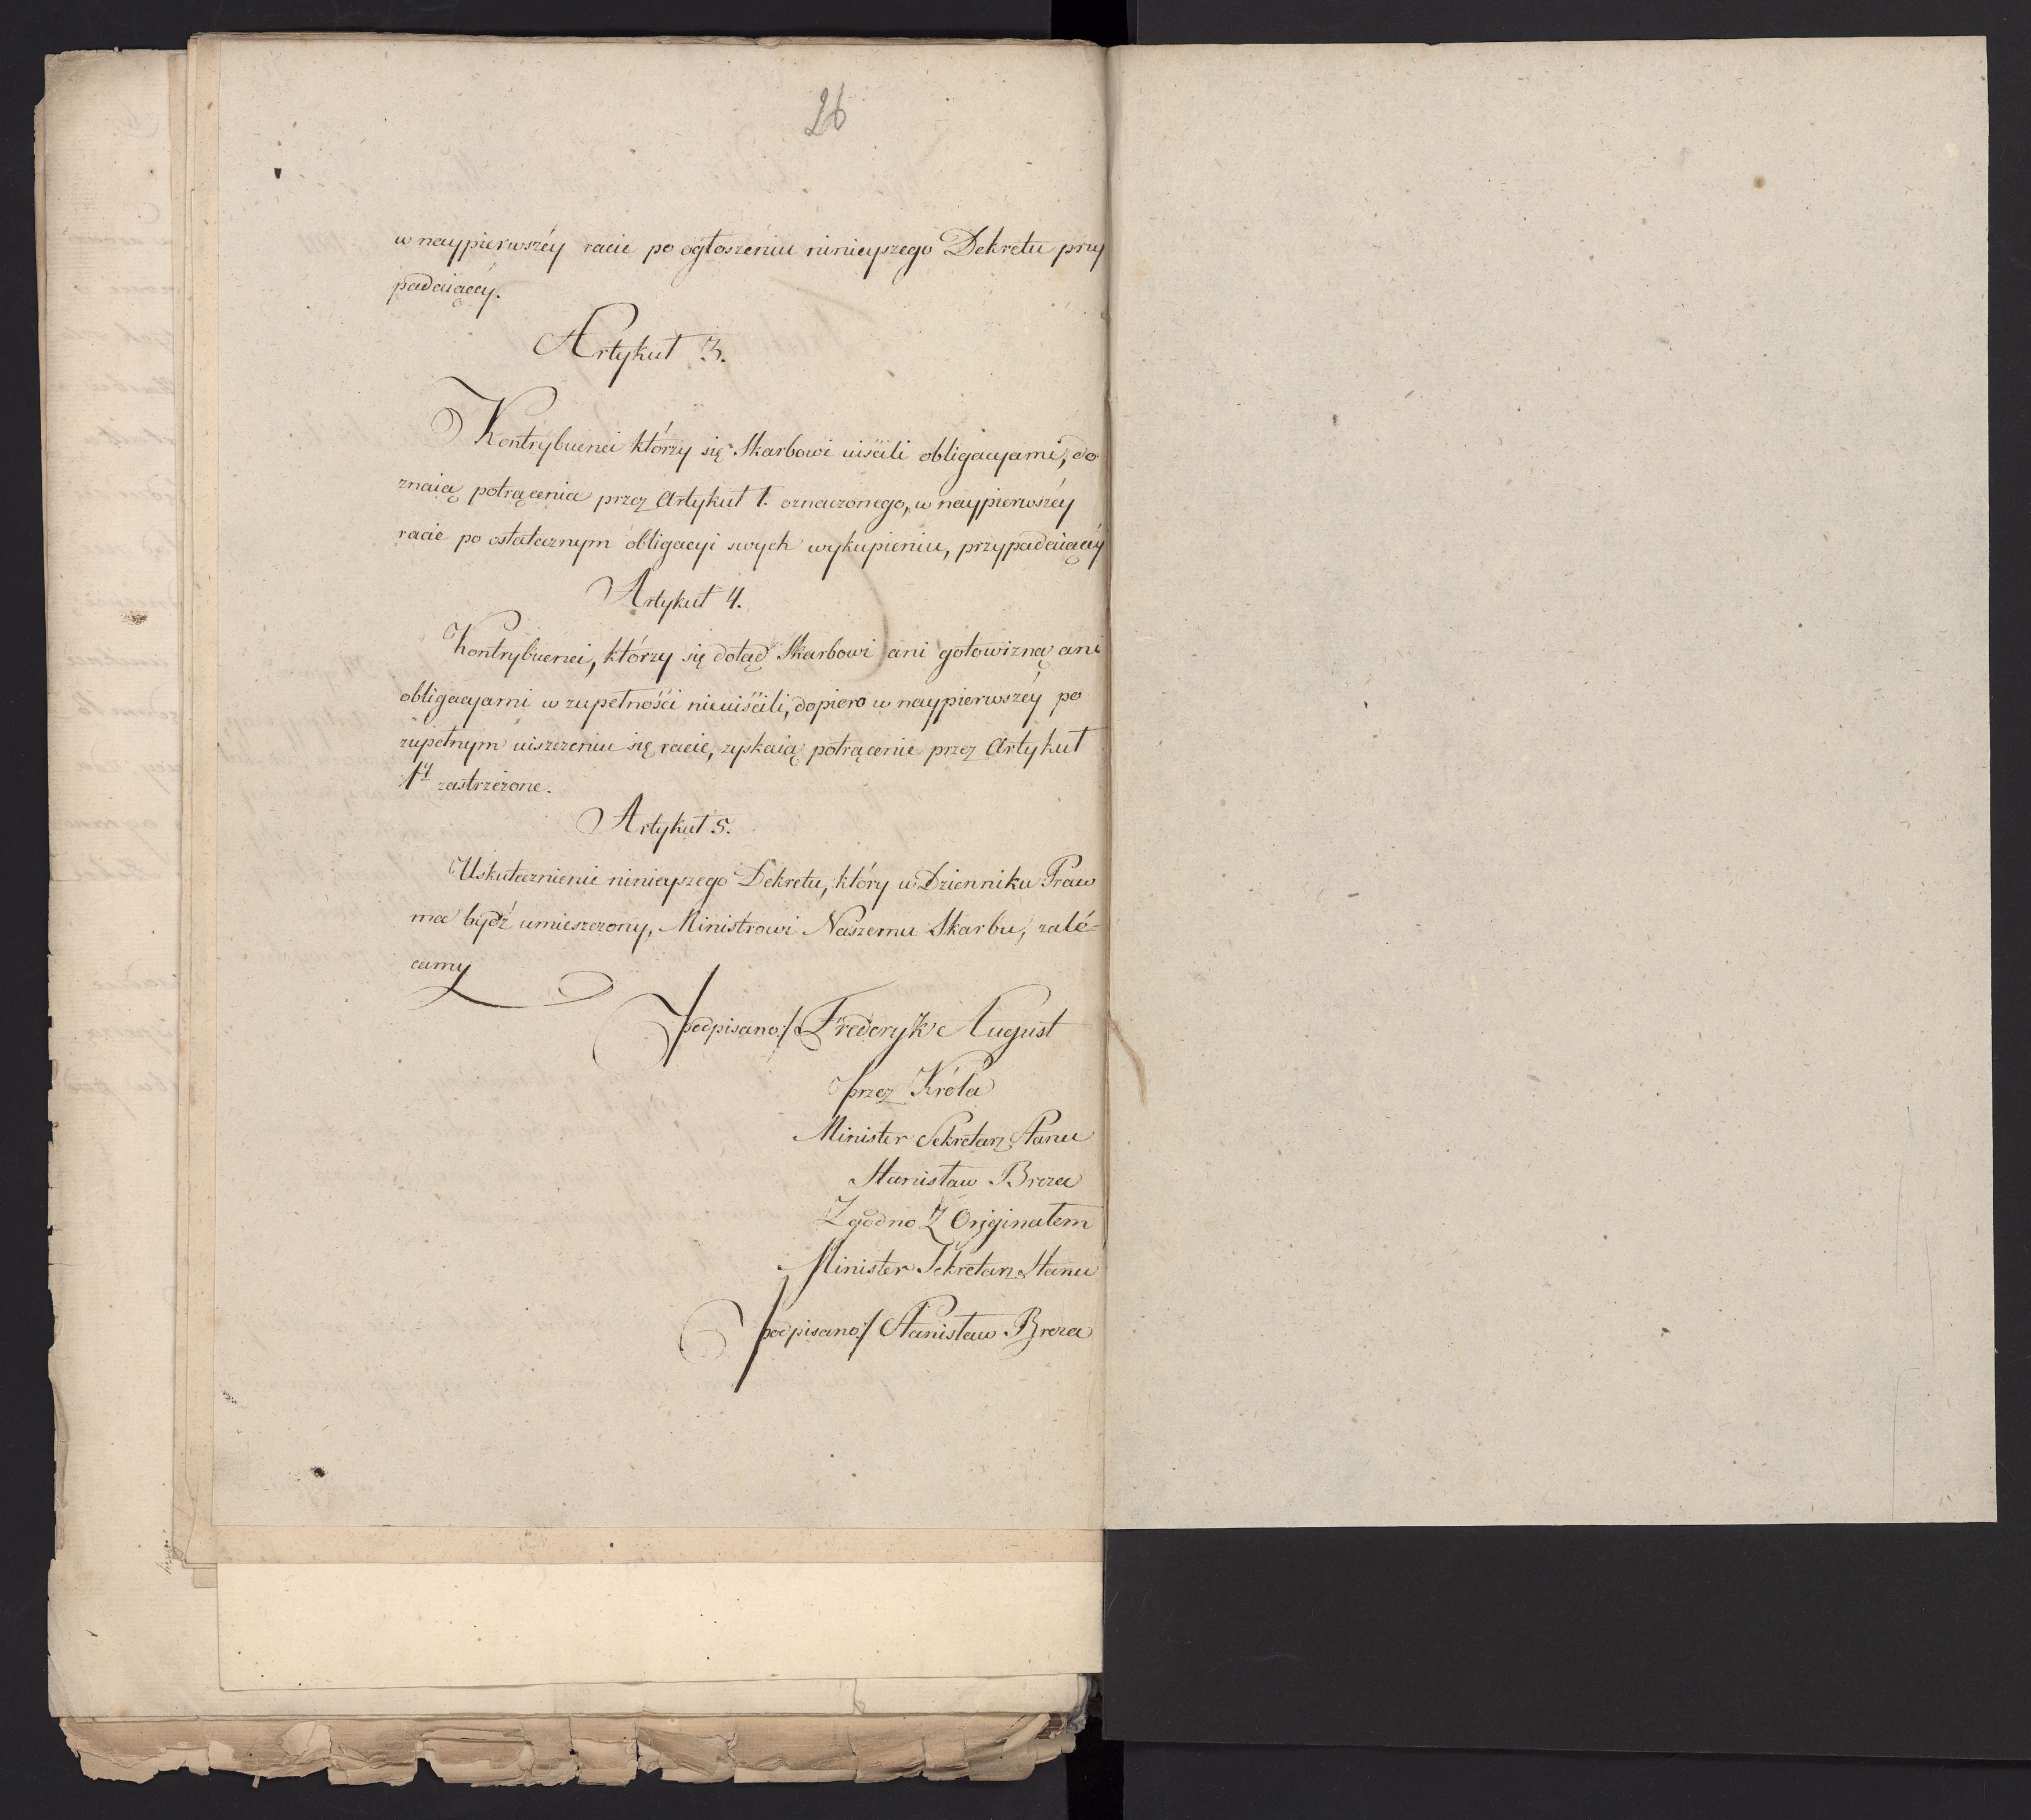 26
w naypierwszéy racie po ogłoszeniu ninieyszego Dekretu przy
padaiącéy.
Artykuł 3.
Kontrybuenci którzy się Skarbowi uiścili obligacyami, do
znaią potrącenia przez Artykuł 1. oznaczonego, w naypierwszéy
racie po ostatecznym obligacyi swych wykupieniu, przypadaiącéy
Artykuł 4.
Kontrybuenci, którzy się dotąd Skarbowi ani gotowizną ani
obligacyami w zupełności nieuiścili, dopiero w naypierwszéy po
zupełnym uiszczeniu się racie, zyskaią potrącenie przez Artykuł
1y zastrzeżone.
Artykuł 5.
Uskutecznienie ninieyszego Dekretu, który w Dzienniku Praw
ma bydź umieszczony, Ministrowi Naszemu Skarbu, zalé=
camy
/podpisano:/ Frederyk August
przez Króla
Minister Sekretarz Stanu
Stanisław Breza
Zgodno Z Oryginałem
Minister Sekretarz Stanu
/podpisano:/ Stanisław Breza